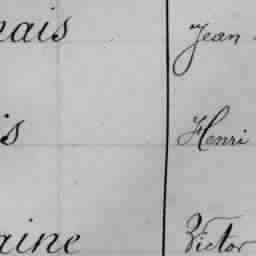 nais Jean
is Henri
aine Victor